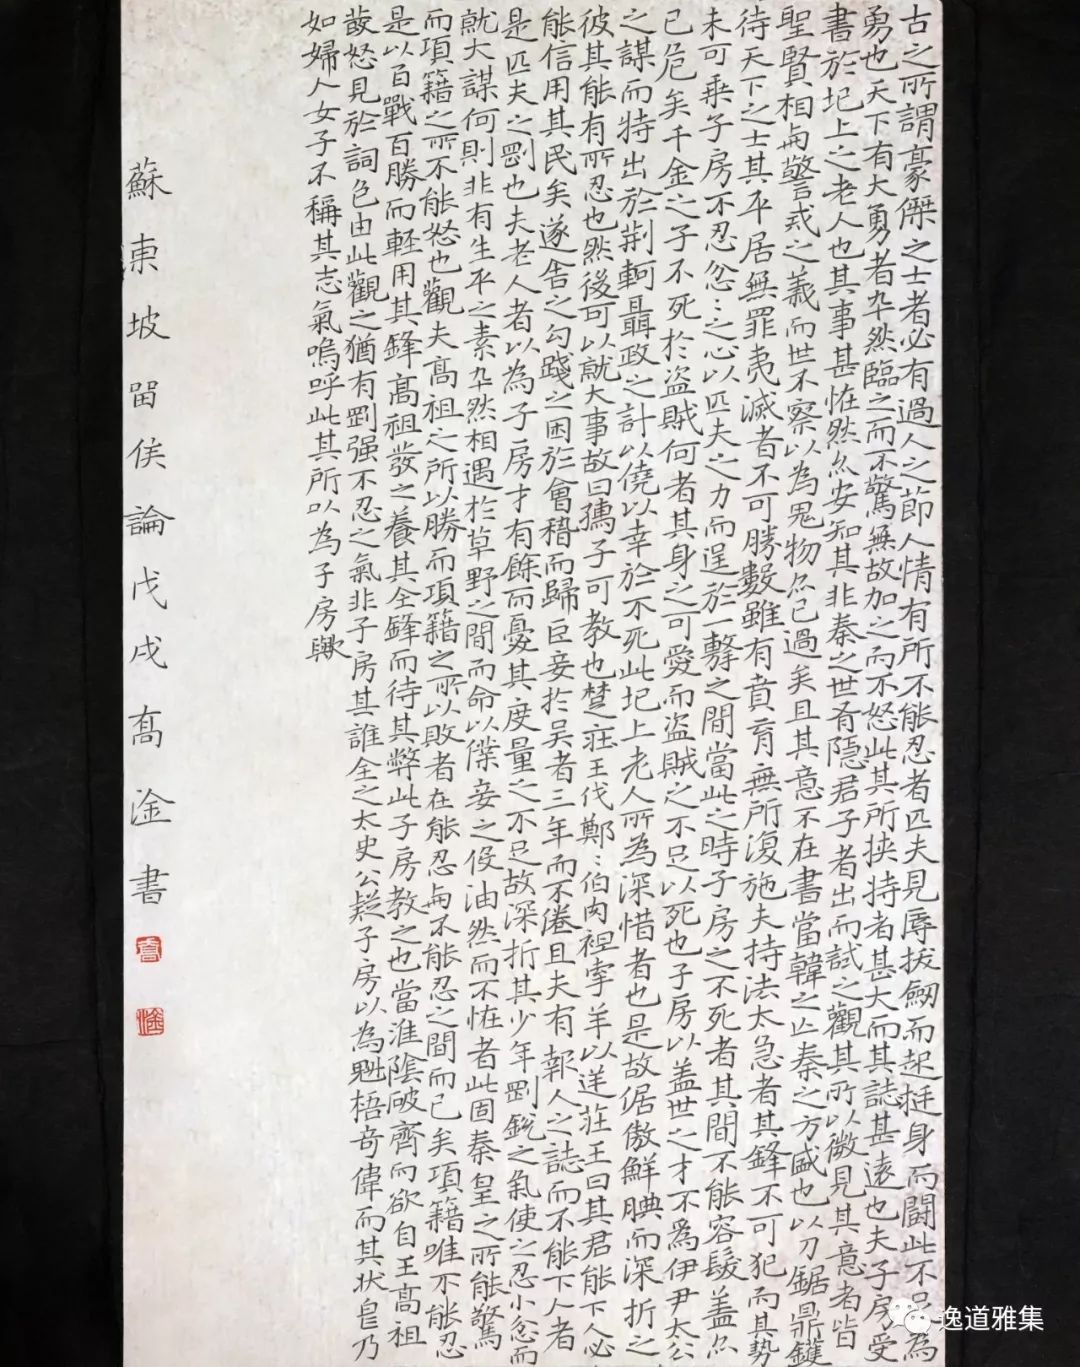 古之所謂豪傑之士者必有過人之節人情有所不能忍者匹夫見辱拔劔而起挺身而鬪此不足為
勇也天下有大勇者卒然臨之而不驚無故加之而不怒此其所挾持者甚大而其誌甚遠也夫子房受
書於圯上之老人也其事甚恠然亦安知其非秦之世有隱君子者出而試之觀其所以微見其意者皆
聖賢相與警戒之義而世不察以為鬼物亦已過矣且其意不在書當韓之亡秦之方盛也以刀鋸鼎鑊
待天下之士其平居無罪夷滅者不可勝數雖有賁育無所復施夫持法太急者其鋒不可犯而其勢
未可乗子房不忍忿〻之心以匹夫之力而逞於一擊之間當此之時子房之不死者其間不能容髮蓋亦
已危矣千金之子不死於盜賊何者其身之可愛而盜賊之不足以死也子房以蓋世之才不爲伊尹太公
之謀而特出於荆軻聶政之計以僥以幸於不死此圯上老人所為深惜者也是故倨傲鮮腆而深折之
彼其能有所忍也然後可以就大事故曰孺子可教也楚莊王伐鄭〻伯肉袒牽羊以迎莊王曰其君能下人必
能信用其民矣遂舍之勾踐之困於會稽而歸臣妾於吴者三年而不倦且夫有報人之誌而不能下人者
是匹夫之剛也夫老人者以為子房才有餘而憂其度量之不足故深折其少年剛銳之氣使之忍小忿而
就大謀何則非有生平之素卒然相遇於草野之間而命以僕妾之役油然而不恠者此固秦皇之所能驚
而項籍之所不能怒也觀夫高祖之所以勝而項籍之所以敗者在能忍與不能忍之間而已矣項籍唯不能忍
是以百戰百勝而輕用其鋒高祖發之養其全鋒而待其弊此子房教之也當淮陰破齊而欲自王高祖
發怒見於詞色由此觀之猶有剛强不忍之氣非子房其誰全之太史公疑子房以為魁梧奇偉而其狀皃乃
如婦人女子不稱其志氣嗚呼此其所以為子房歟
蘇東坡留侯論戊戌髙淦書
逸道雅集